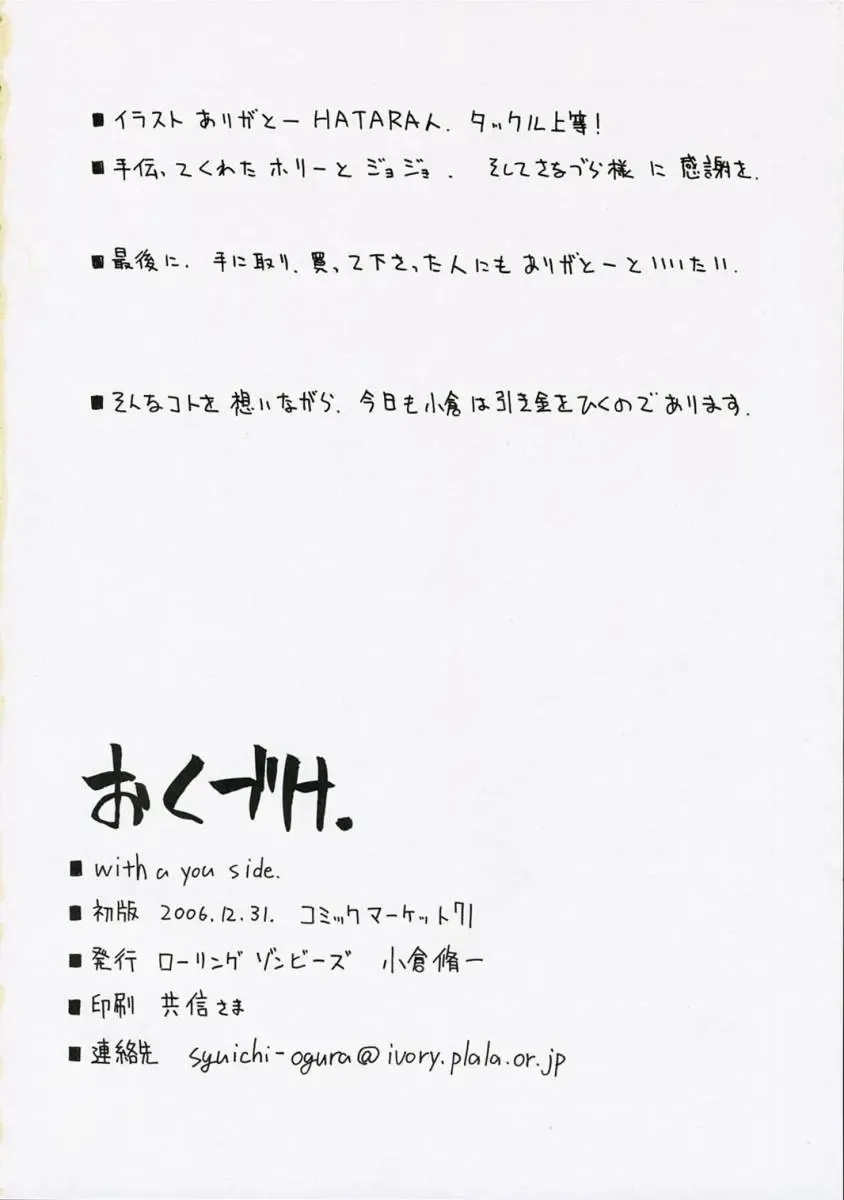 ■イラスト ありがとー HATARA人. タックル上等!
■手伝ってくれた ホリーと ジョジョ. そしてさなづら様 に 感謝を.
■最後に. 手に取り. 買って下さった人にも ありがとーといいたい.
■そんなコトを 想いながら. 今日も小倉は引き金をひくのであります.
おくづけ.
■with a you side.
■初版 2006.12.31. コミックマーケット71
■発行 ローリングゾンビーズ 小倉脩一
■印刷 共信さま
■連絡先 syuichi-ogura@ivory.plala.or.jp